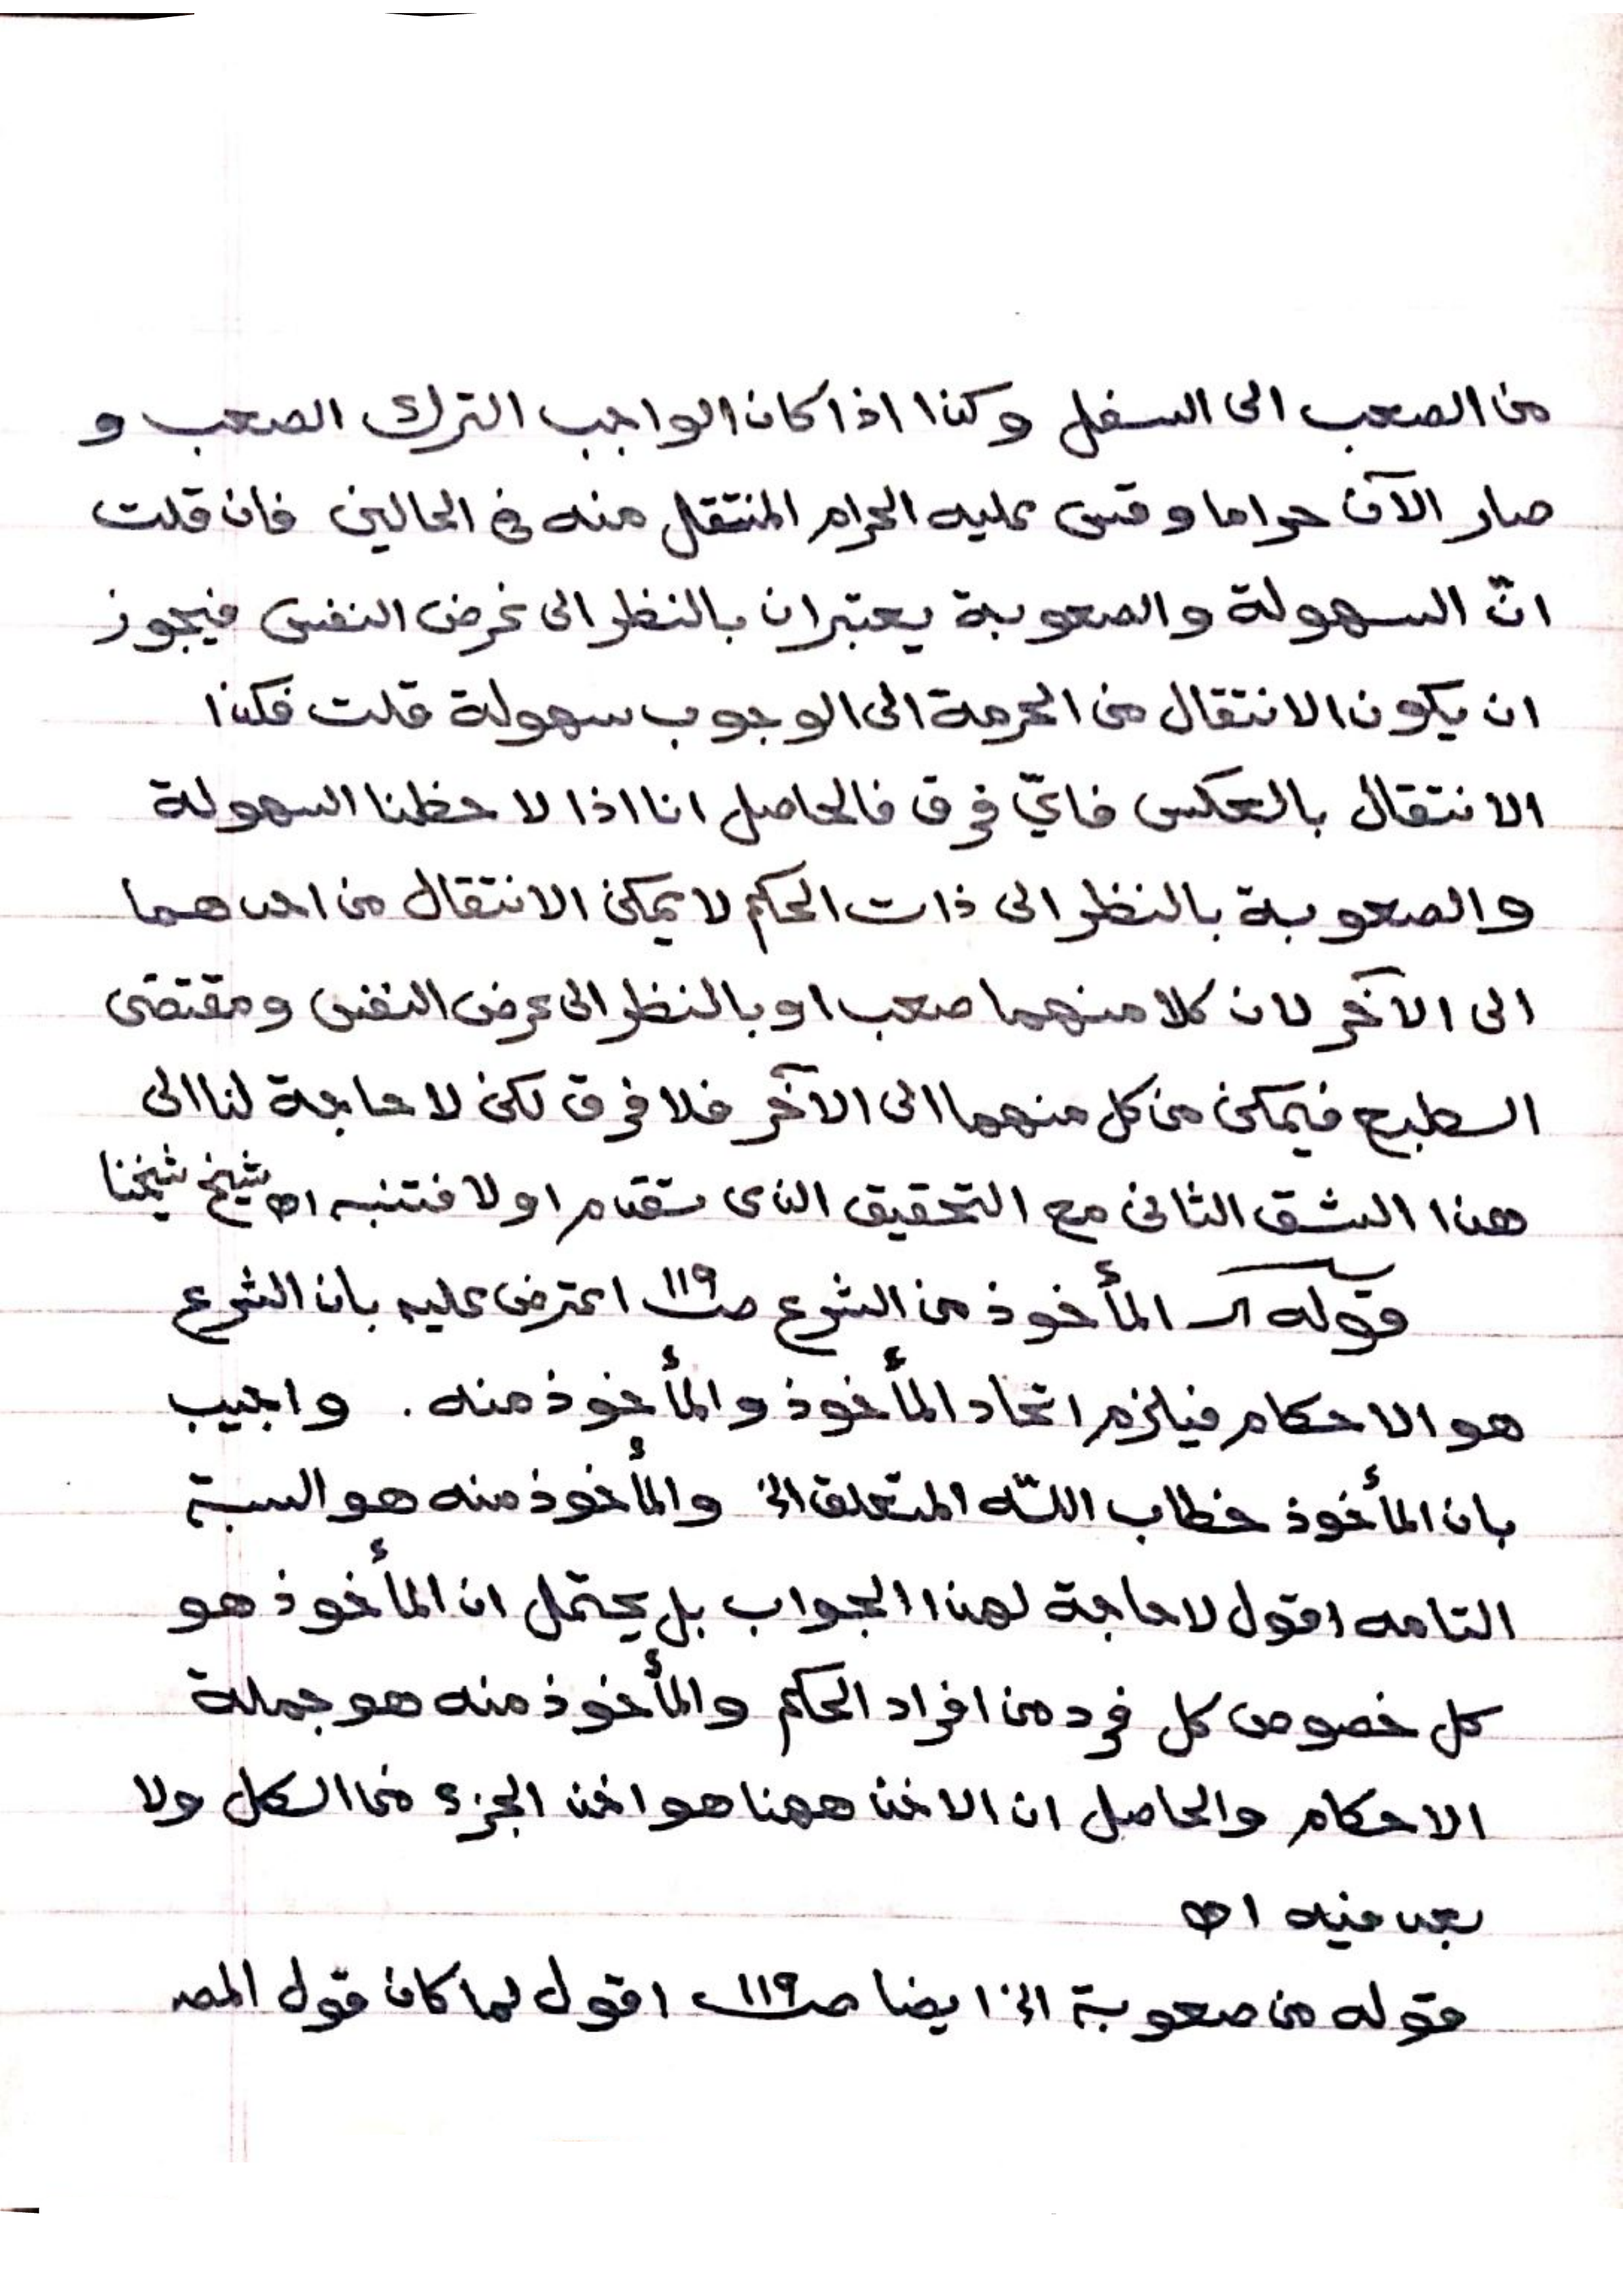 من الصعب الى السفل وكذا اذا كان الواجب الترك الصعب و
صار الآن حراما وقس عليه الحرام المنتقل منه في الحالين فان قلت
انّ السهولة والصعوبة يعتبران بالنظر الى غرض النفس فيجوز
ان يكون الانتقال من الحرمة الى الوجوب سهولة قلت فكذا
الانتقال بالعكس فايّ فرق فالحاصل انا اذا لاحظنا السهولة
والصعوبة بالنظر الى ذات الحكم لا يمكن الانتقال من احدهما
الى الآخر لان كلا منهما صعب او بالنظر الى عرض النفس ومقتضى
الطبع فيمكن من كل منهما الى الآخر فلا فرق لكن لا حاجة لنا الى
هذا الشق الثانى مع التحقيق الذى تقدم اولا فتنبه اه شيخ شيخنا
قوله المأخوذ من الشرع صـ١١٩ اعترض عليه بان الشرع
هو الاحكام فيلزم اتحاد المأخوذ والمأخوذ منه . واجيب
بان المأخوذ خطاب اللّٰه المتعلق الخ والمأخوذ منه هو السبتة
التامه اقول لا حاجة لهذا الجواب بل يحتمل ان المأخوذ هو
كل خصوص كل فرد من افراد الحكم والمأخوذ منه هو جملة
الاحكام والحاصل ان الاخذ ههنا هو اخذ الجزء من الكل ولا
بعد فيه اه
قوله من صعوبة الخ ايضا صـ١١٩ اقول لما كان قول المصـ